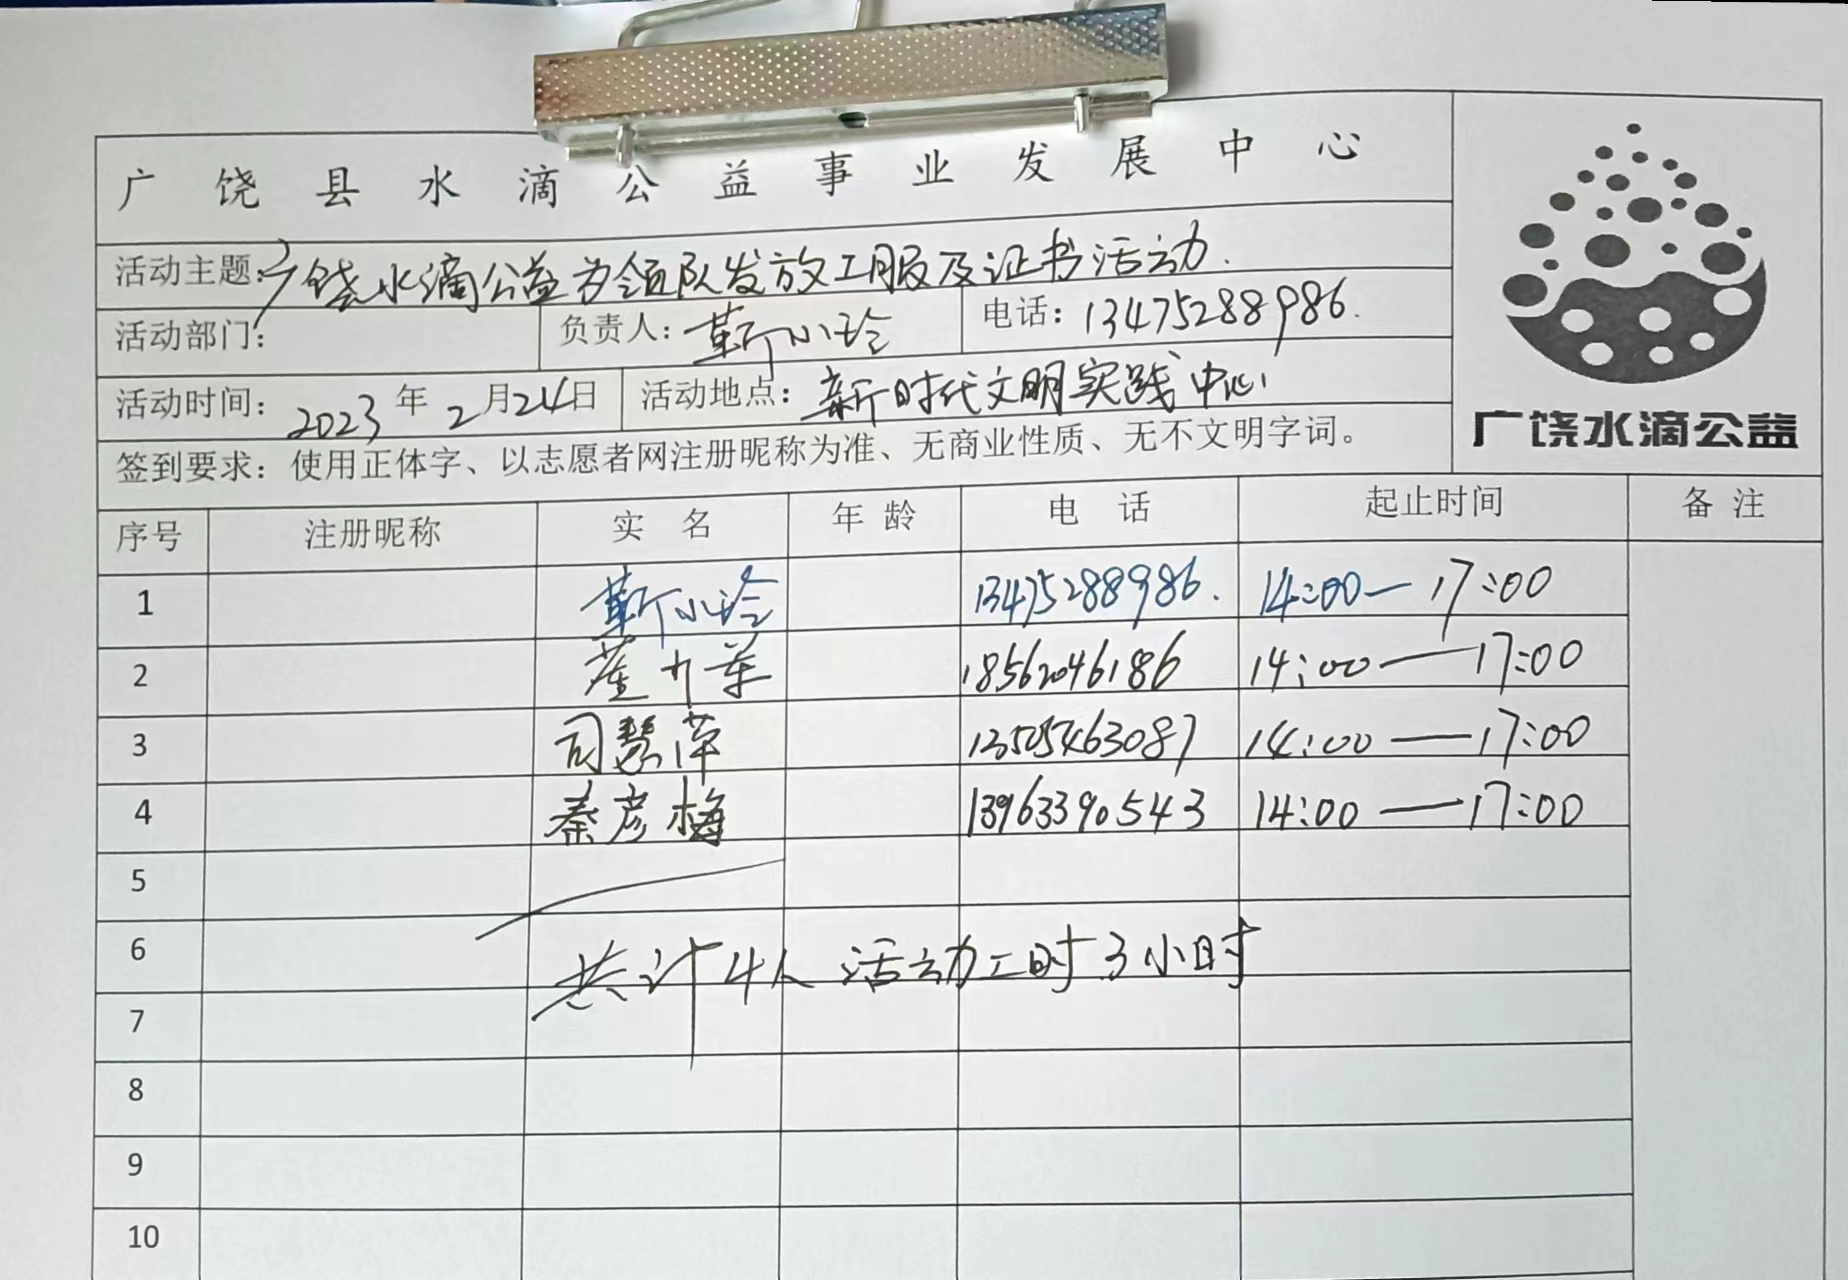 广饶县水滴公益事业发展中心
活动主题:广饶水滴公益为领队发放工服及证书活动.
活动部门: 负责人: 靳小玲 电话: 13475288986.
活动时间: 2023年2月24日 活动地点: 新时代文明实践中心
签到要求: 使用正体字、以志愿者网注册昵称为准、无商业性质、无不文明字词。
广饶水滴公益
序号 注册昵称 实名 年龄 电话 起止时间 备注
1 靳小玲 13475288986. 14:00—17:00
2 18562046186 14:00—17:00
3 司慧萍 13505463087 14:00—17:00
4 秦彦梅 13963390543 14:00—17:00
5
6
共计4人 活动工时3小时
7
8
9
10